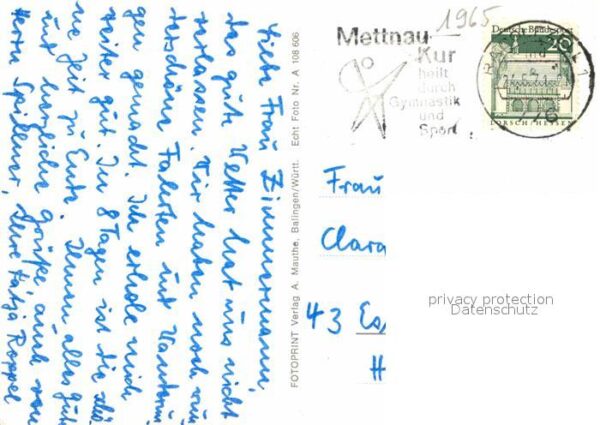 Liebe Frau Zimmermann,
das gute Wetter hat uns nicht
verlassen. Wir haben noch wun-
derschöne Fahrten und Wanderun-
gen gemacht. Ich erhole mich
weiter gut. In 8 Tagen ist die schö-
ne Zeit zu Ende. Ihnen alles Gute
und herzliche Grüße, auch von
Herrn Spillener, Ihre Katja Roppel
FOTOPRINT Verlag A. Mauthe, Balingen/Württ. Echt Foto Nr. A 108 606
1965
Mettnau
Kur
heilt
durch
Gymnastik
und
Sport
Deutsche Bundespost
20
LORSCH/HESSEN
Frau
Clara
43 Es
H
privacy protection
Datenschutz